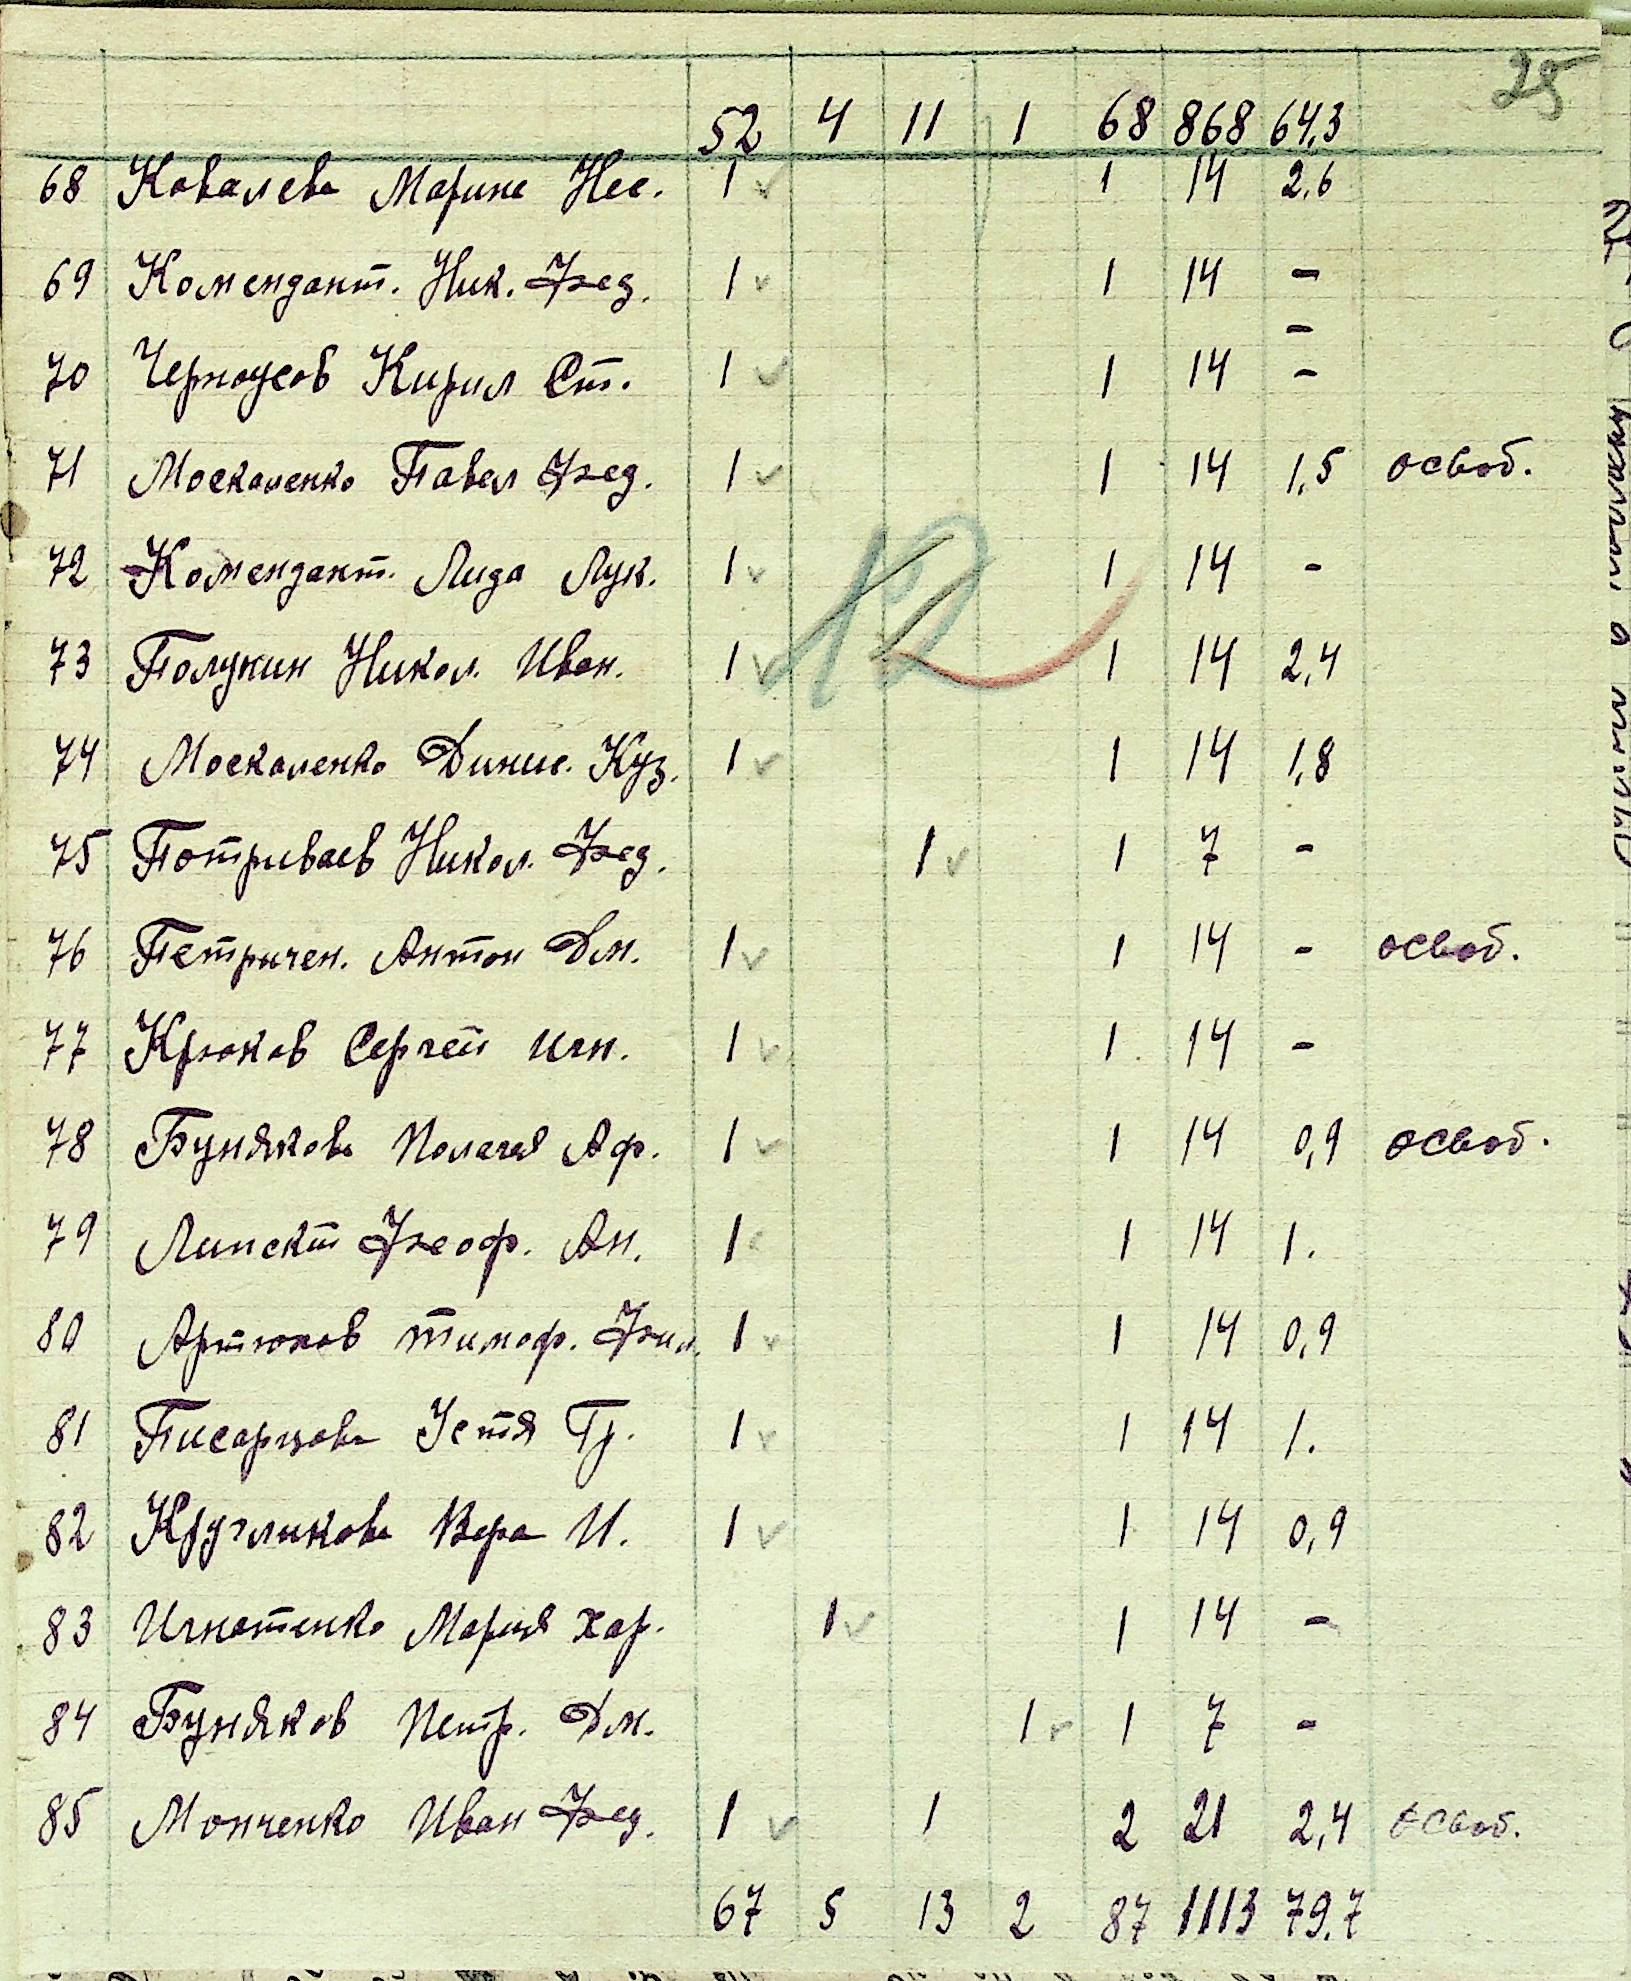 25
52 4 11 1 68 868 64,3
68 Ковалева Марина Нес. 1 1 14 2,6
69 Комендант. Ник. Фед. 1 1 14 -
-
70 Черноусов Кирил Ст. 1 1 14 -
71 Москаленко Павел Фед. 1 1 14 1,5 освоб.
72 Комендант. Лида Лук. 1 1 14 -
12
73 Полунин Никол. Иван. 1 1 14 2,4
74 Москаленко Динис. Куз. 1 1 14 1,8
75 Потриваев Никол. Фед. 1 1 7 -
76 Петричен. Антон Дм. 1 1 14 - освоб.
77 Крюков Сергей Игн. 1 1 14 -
78 Бунякова Полагея Аф. 1 1 14 0,9 освоб.
79 Феоф. Ан. 1 1 14 1.
80 Артюхов Тимоф. Фил. 1 1 14 0,9
81 Писарцова Устя Гр. 1 1 14 1.
82 Кругликова Вера И. 1 1 14 0,9
83 Игнатенко Мария Хар. 1 1 14 -
84 Буняков Петр. Дм. 1 1 7 -
85 Монченко Иван Фед. 1 1 2 21 2,4 освоб.
67 5 13 2 87 1113 79.7